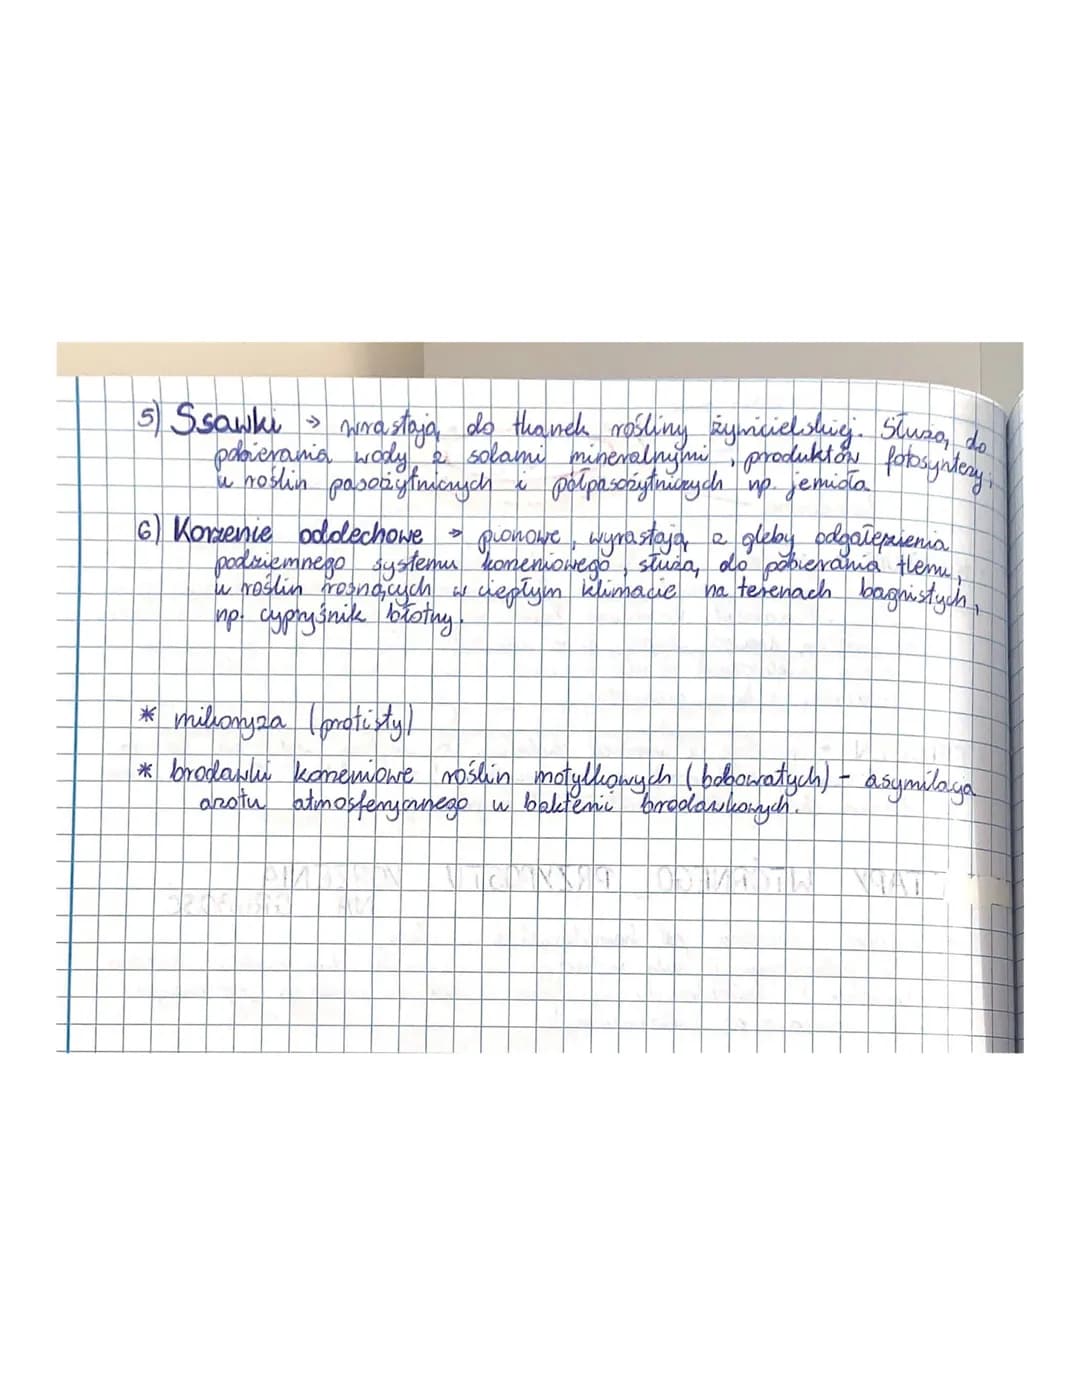 5) Ssawki → wrastają do tkanek rośliny żywicielskiej. Służą do
pobierania wody z solami mineralnymi, produktów fotosyntezy,
u roślin pasożytniczych i półpasożytniczych np. jemioła
6) Korzenie oddechowe → pionowe, wyrastają z gleby odgałęzienia
podziemnego systemu korzeniowego, służą do pobierania tlenu,
u roślin rosnących w ciepłym klimacie na terenach bagnistych,
np. cypryśnik błotny.
* mikoryza (protisty)
* brodawki korzeniowe roślin motylkowych (bobowatych) - asymilacja
azotu atmosferycznego u bakterii brodawkowych.